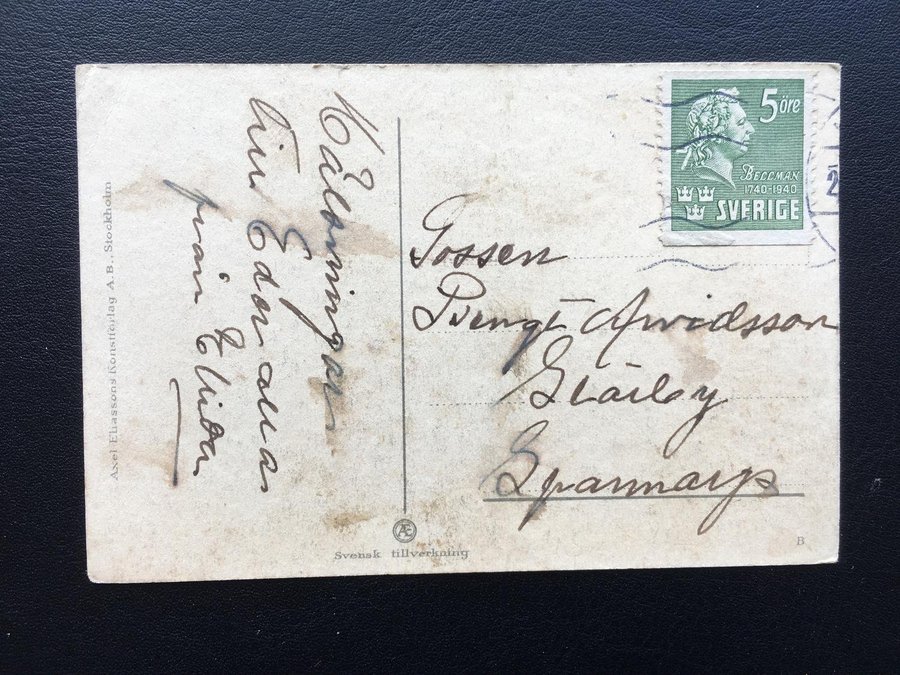 Hälsningar
till Eder alla
från Elida
Gossen
Bengt Arvidsson
Spannarp
5 öre
BELLMAN
1740-1940
SVERIGE
2
Axel Eliassons Konstförlag A.B., Stockholm
Æ
Svensk tillverkning
B